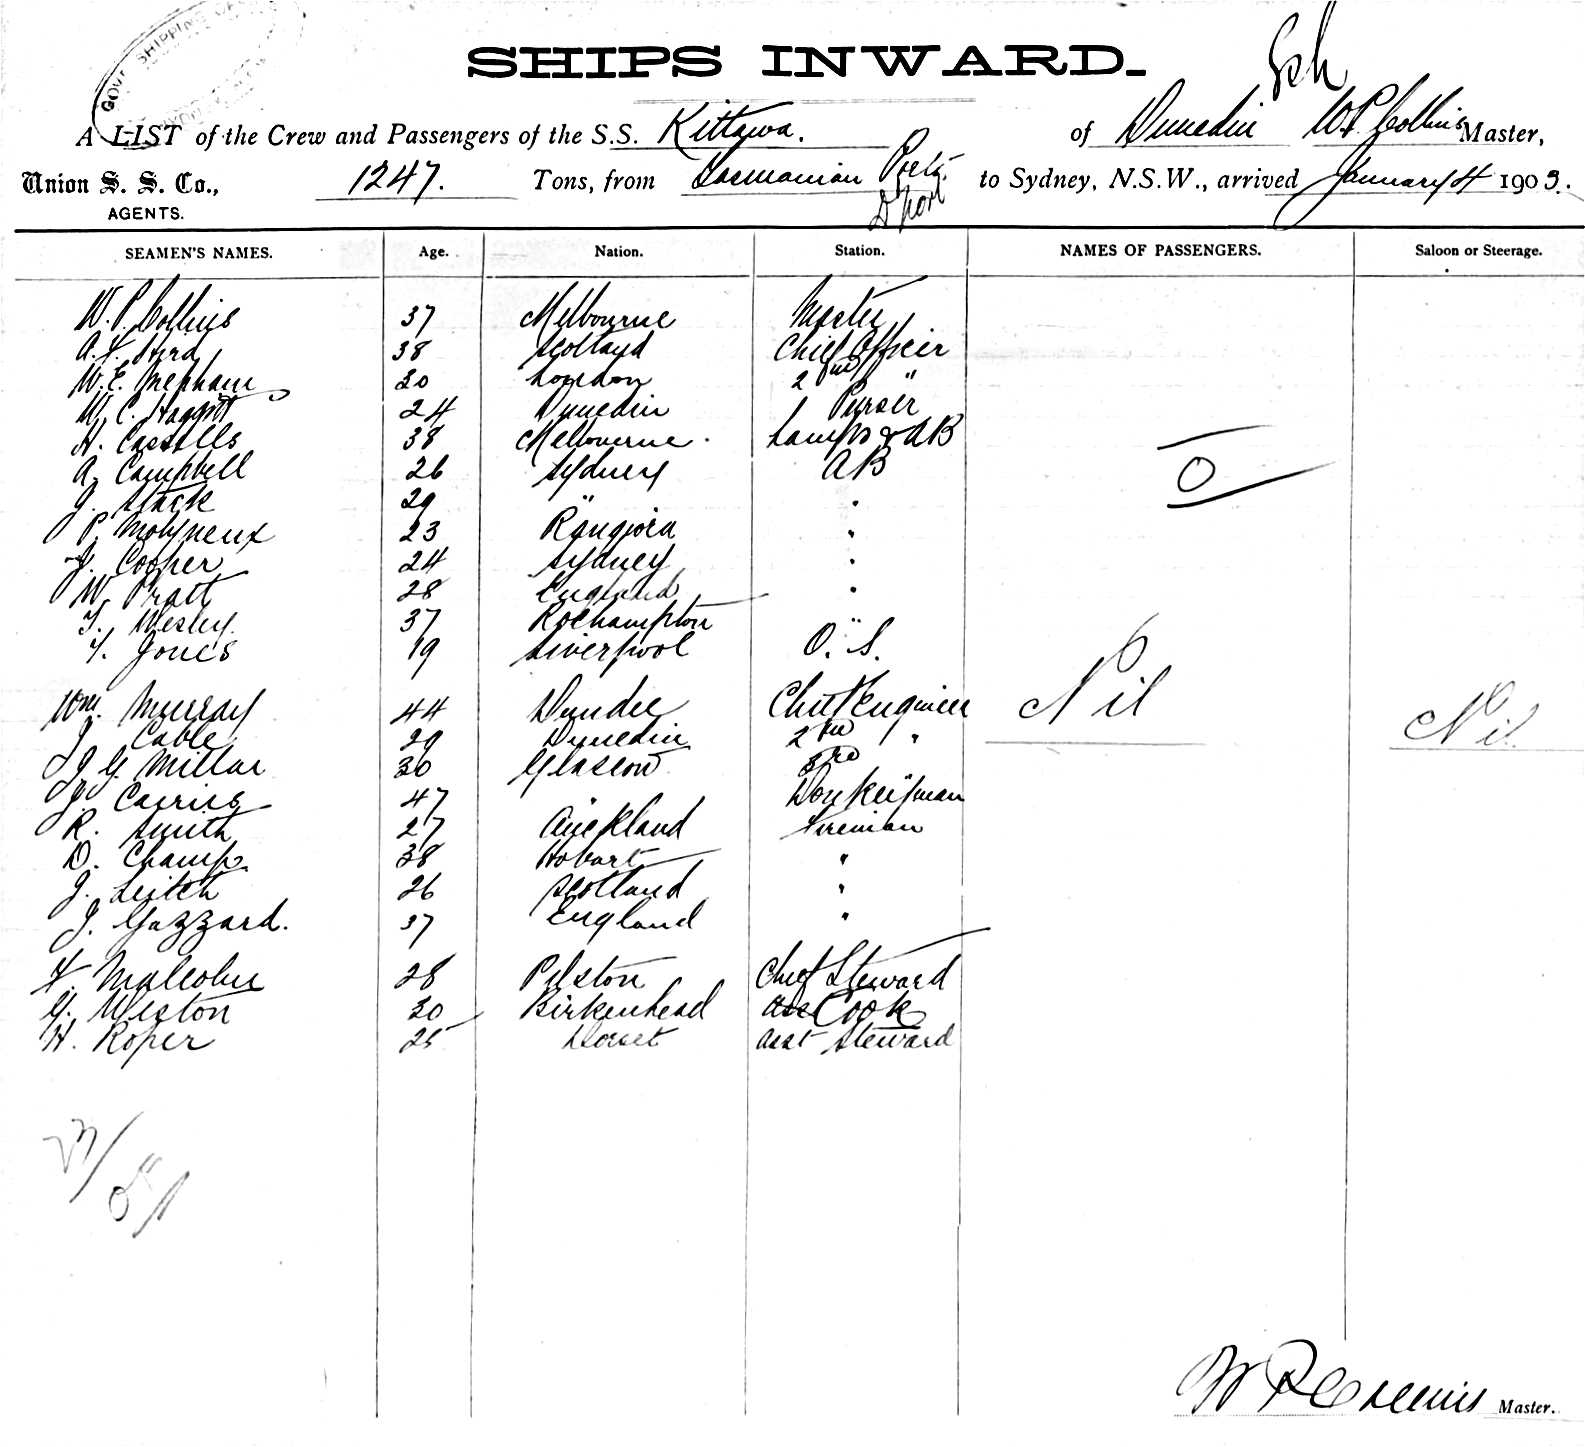 GOVT SHIPPING
SHIPS INWARD.
A LIST of the Crew and Passengers of the S.S. Kittawa. of Dunedin W. P. Collins Master,
Union S. S. Co., 1247. Tons, from Tasmanian Ports to Sydney, N.S.W., arrived January 4 1903.
AGENTS.
SEAMEN'S NAMES. Age. Nation. Station. NAMES OF PASSENGERS. Saloon or Steerage.
W. P. Collins 37 Melbourne Master
A. F. Hird 38 Scotland Chief Officer
W. E. Mepham 30 London 2nd "
W. C. Haggitt 24 Dunedin Purser
H. Cassells 38 Melbourne. Lamps & AB
A. Campbell 26 Sydney AB
J. Slack 29 " "
P. Molyneux 23 Rangiora "
J. Cooper 24 Sydney "
W. Pratt 28 England "
T. Wesley. 37 Roehampton "
F. Jones 19 Liverpool O. S.
O
Wm. Murray 44 Dundee Chief Engineer Nil Nil
J. Cable 29 Dunedin 2nd "
J. G. Millar 30 Glascow 3rd
J. Cairns 47 " Donkeyman
R. Smith 27 Auckland Fireman
D. Champ 38 Hobart "
J. Leitch 26 Scotland "
J. Gazzard. 37 England "
F. Malcolm 28 Chief Steward
G. Weston 30 Birkenhead Cook
H. Roper 25 Dorset asst Steward
W P Collins Master.